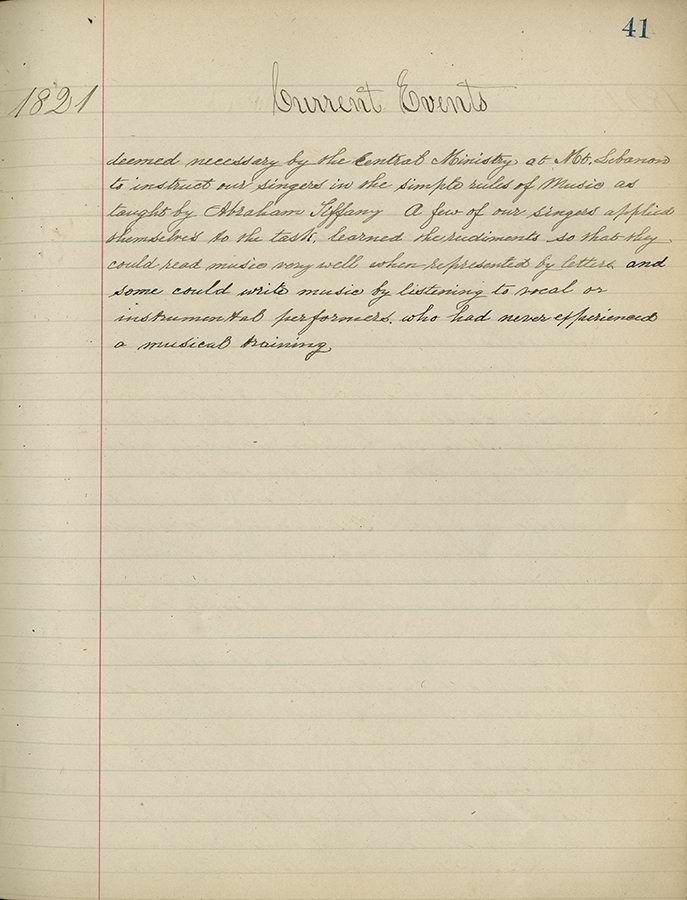 41
1821 Current Events
deemed necessary by the Central Ministry at Mt. Lebanon
to instruct our singers in the simple rules of Music as
taught by Abraham Tiffany A few of our singers applied
themselves to the task, learned the rudiments so that they
could read music very well when represented by letters and
some could write music by listening to vocal or
instrumental performers. who had never experienced
a musical training